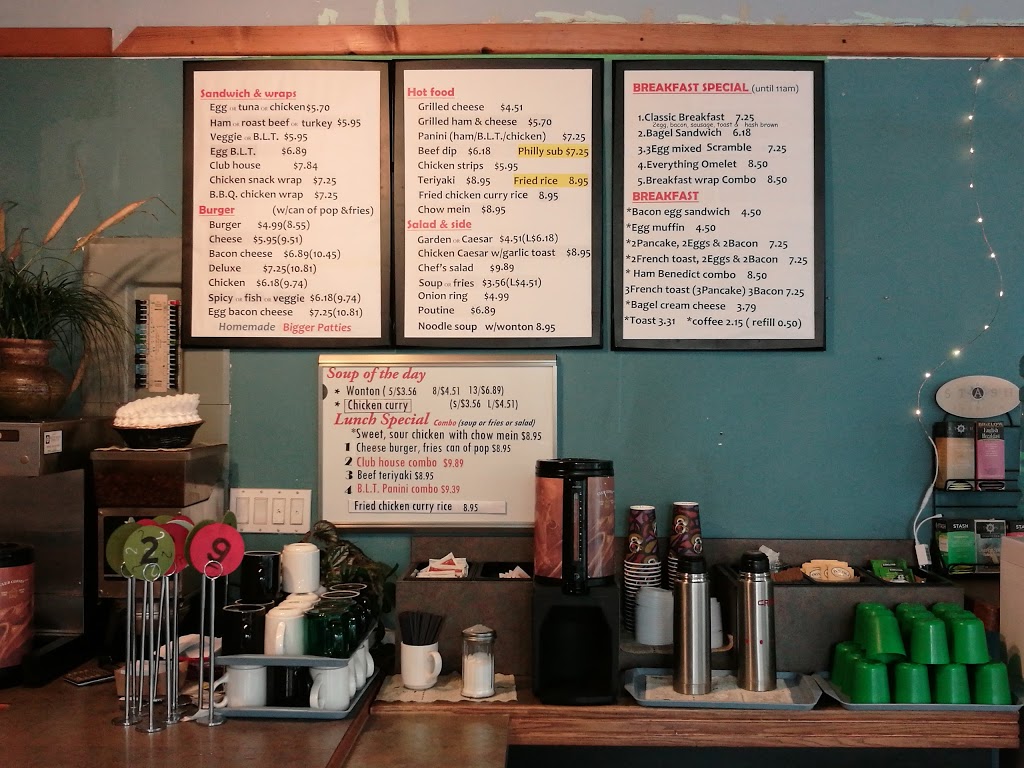 Sandwich & wraps
Egg OR tuna OR chicken $5.70
Ham OR roast beef OR turkey $5.95
Veggie OR B.L.T. $5.95
Egg B.L.T. $6.89
Club house $7.84
Chicken snack wrap $7.25
B.B.Q. chicken wrap $7.25
Burger (w/can of pop &fries)
Burger $4.99(8.55)
Cheese $5.95(9.51)
Bacon cheese $6.89(10.45)
Deluxe $7.25(10.81)
Chicken $6.18(9.74)
Spicy OR fish OR veggie $6.18(9.74)
Egg bacon cheese $7.25(10.81)
Homemade Bigger Patties
Hot food
Grilled cheese $4.51
Grilled ham & cheese $5.70
Panini (ham/B.L.T./chicken) $7.25
Beef dip $6.18 Philly sub $7.25
Chicken strips $5.95
Teriyaki $8.95 Fried rice 8.95
Fried chicken curry rice 8.95
Chow mein $8.95
Salad & side
Garden OR Caesar $4.51(L$6.18)
Chicken Caesar w/garlic toast $8.95
Chef's salad $9.89
Soup OR fries $3.56(L$4.51)
Onion ring $4.99
Poutine $6.89
Noodle soup w/wonton 8.95
BREAKFAST SPECIAL (until 11am)
1.Classic Breakfast 7.25
2egg, bacon, sausage, toast & hash brown
2.Bagel Sandwich 6.18
3.3Egg mixed Scramble 7.25
4.Everything Omelet 8.50
5.Breakfast wrap Combo 8.50
BREAKFAST
*Bacon egg sandwich 4.50
*Egg muffin 4.50
*2Pancake, 2Eggs & 2Bacon 7.25
*2French toast, 2Eggs & 2Bacon 7.25
* Ham Benedict combo 8.50
3French toast (3Pancake) 3Bacon 7.25
*Bagel cream cheese 3.79
*Toast 3.31 *coffee 2.15 ( refill 0.50)
Soup of the day
* Wonton ( S/$3.56 8/$4.51 13/$6.89)
* Chicken curry (S/$3.56 L/$4.51)
Lunch Special Combo (soup or fries or salad)
*Sweet, sour chicken with chow mein $8.95
1 Cheese burger, fries can of pop $8.95
2 Club house combo $9.89
3 Beef teriyaki $8.95
4 B.L.T. Panini combo $9.39
Fried chicken curry rice 8.95
2
9
STASH
English Breakfast
STASH
STASH